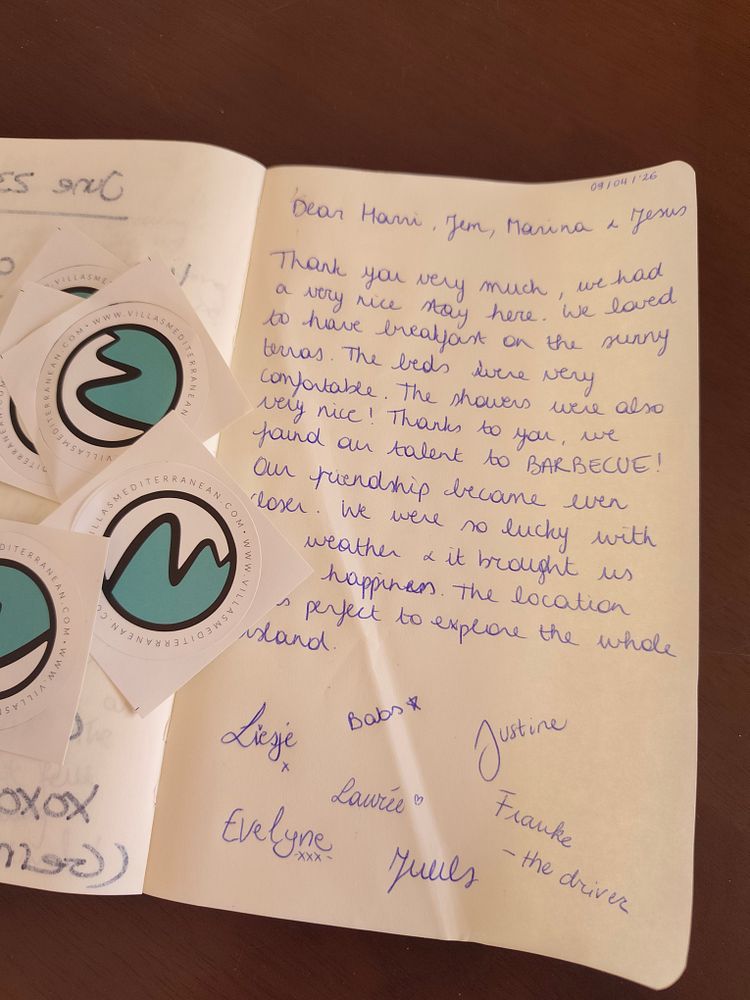 09/04/'26
Dear Harri, Jem, Marina & Jesus
Thank you very much, we had
a very nice stay here. We loved
to have breakfast on the sunny
terras. The beds were very
comfortable. The showers were also
very nice! Thanks to you, we
found our talent to BARBECUE!
Our friendship became even
closer. We were so lucky with
weather & it brought us
happiness. The location
perfect to explore the whole
island.
Liesje
x
Babs
Justine
Laurie
Evelyne
-xxx-
Juuls
Frauke
- the driver
June 23
XOXO
WWW.VILLASMEDITERRANEAN.COM
WWW.VILLASMEDITERRANEAN.COM